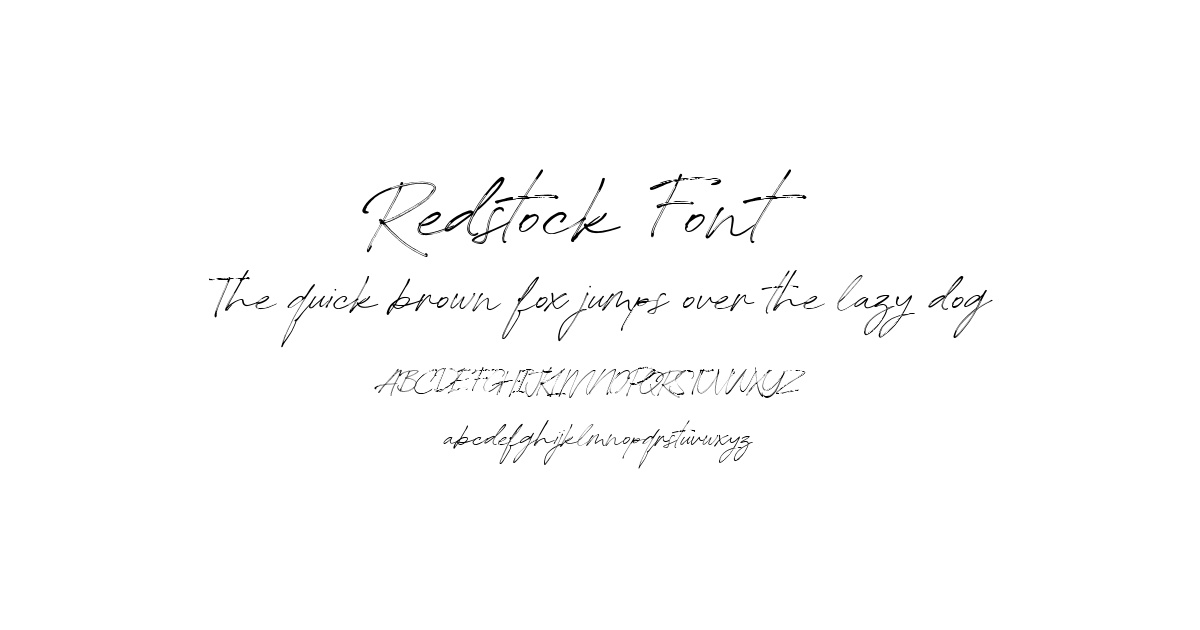 Redstock Font
The quick brown fox jumps over the lazy dog
ABCDEFGHIJKLMNOPQRSTUVWXYZ
abcdefghijklmnopqrstuvwxyz